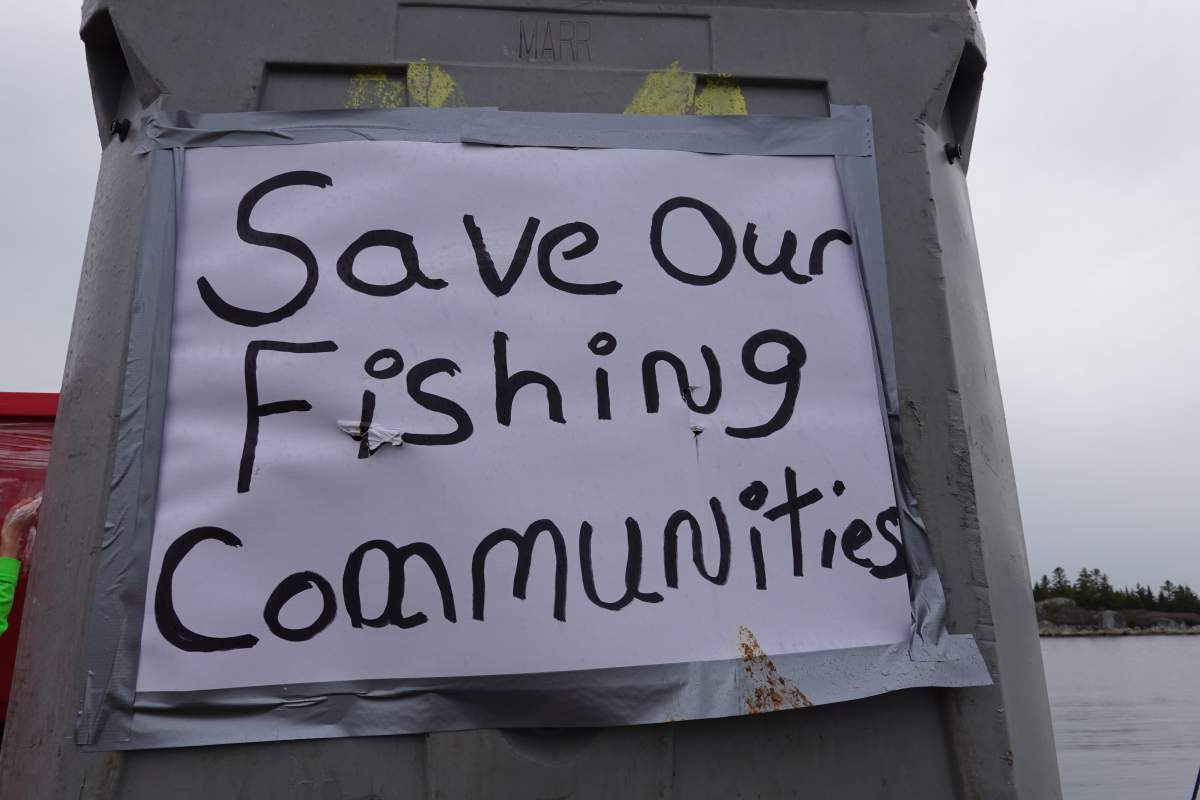 MARR
Save Our
Fishing
Communities